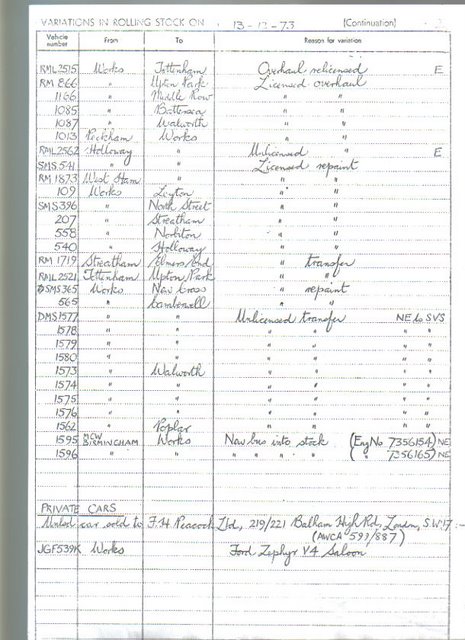 VARIATIONS IN ROLLING STOCK ON 13-12-73 (Continuation)
Vehicle number From To Reason for variation
RML 2515 Works Tottenham Overhaul relicensed E
RM 866 " Upton Park Licensed overhaul
1166 " Middle Row " "
1085 " Battersea " "
1087 " Walworth " "
1013 Peckham Works " "
RML 2562 Holloway " Unlicensed " E
SMS 541 " " Licensed repaint
RM 1873 West Ham " " "
109 Works Leyton " "
SMS 396 " North Street " "
207 " Streatham " "
558 " Norbiton " "
540 " Holloway " "
RM 1719 Streatham Elmers End " transfer
RML 2521 Tottenham Upton Park " "
SMS 365 Works New Cross " repaint
665 " Camberwell " "
DMS 1577 " " Unlicensed transfer NE to SVS
1578 " " " " " "
1579 " " " " " "
1580 " " " " " "
1573 " Walworth " " " "
1574 " " " " " "
1575 " " " " " "
1576 " " " " " "
1562 " Poplar " " " "
1595 MCW BIRMINGHAM Works New bus into stock (Eng No 7356154) NE
1596 " " " " " " ( " 7356165) NE
PRIVATE CARS
car sold to F.H. Peacock Ltd, 219/221 Balham High Rd, London, S.W.17:-
(AWCA 599/887)
JGF539K Works Ford Zephyr V4 Saloon